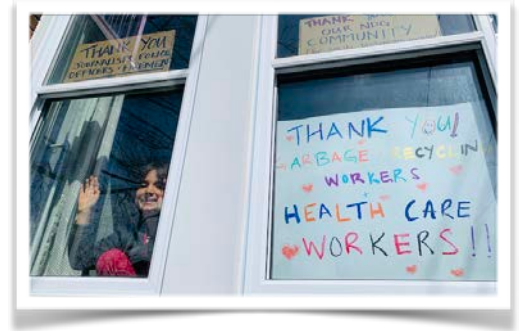 THANK YOU
JOURNALISTS POLICE
OFFICERS FIREMEN
THANK
OUR NDG
COMMUNITY
THANK YOU!
GARBAGE RECYCLING
WORKERS
HEALTH CARE
WORKERS!!